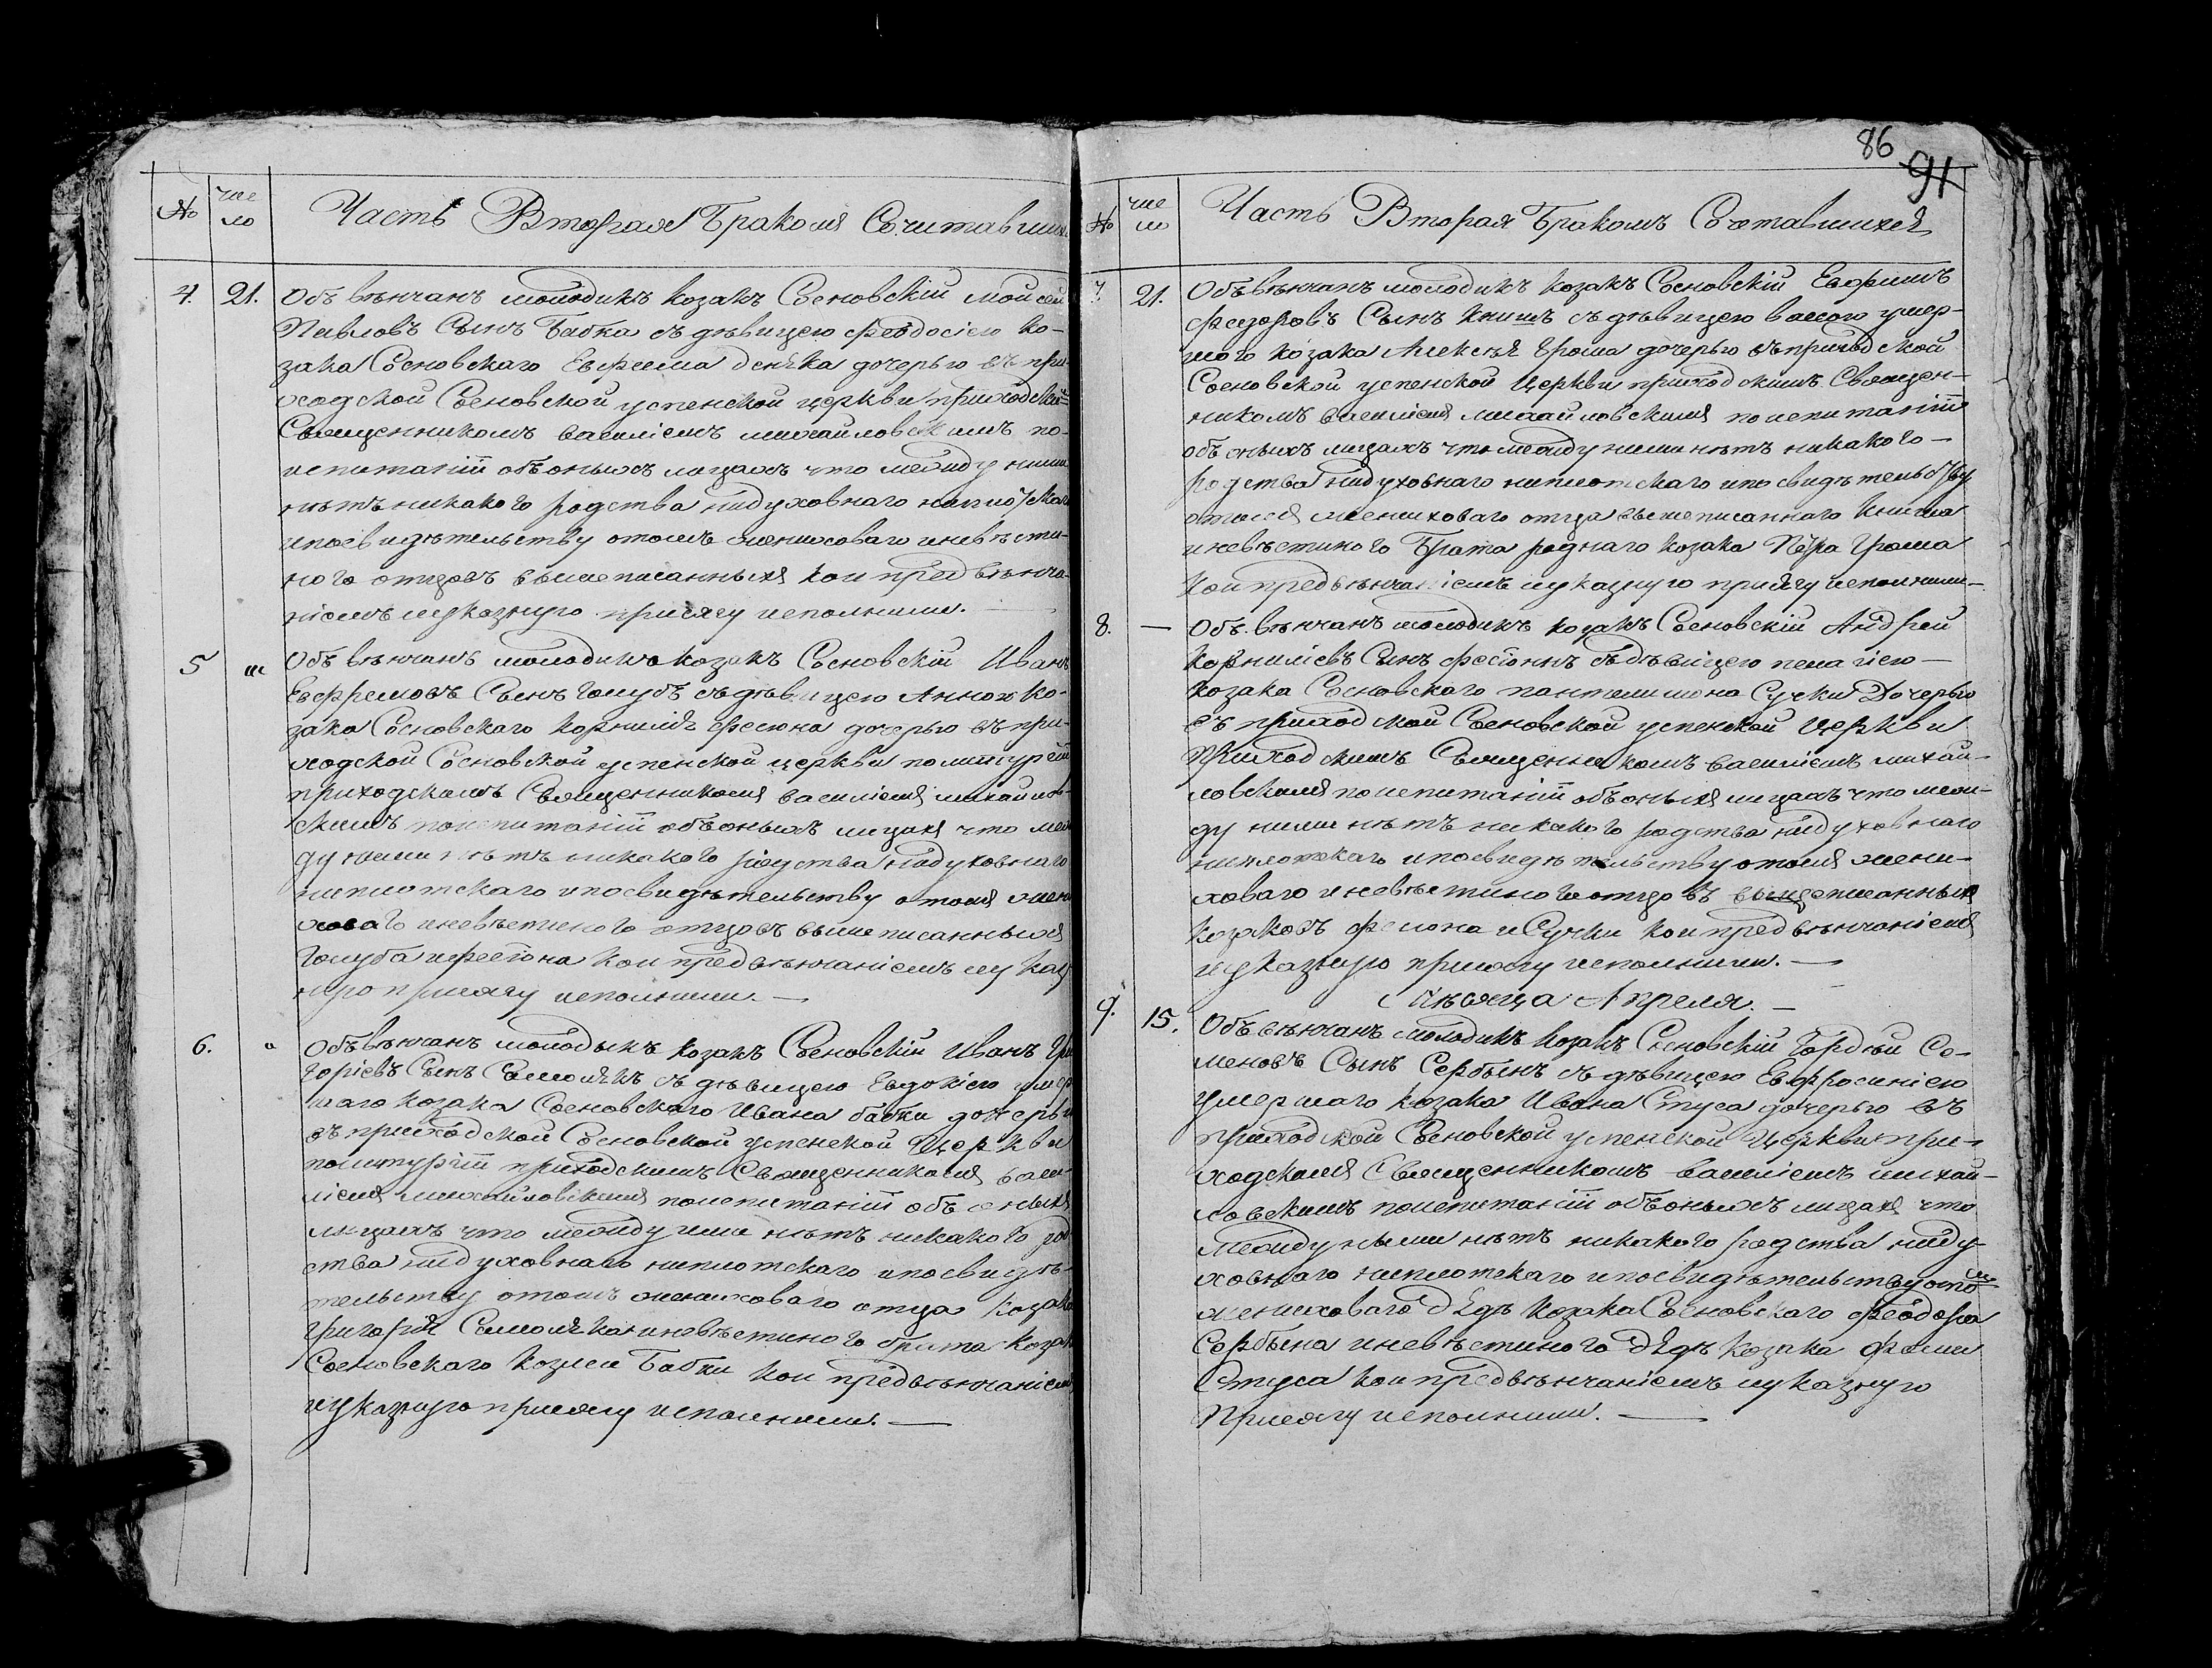 № чис
ло
Часть Вторая Бракомъ Сочитавши
4. 21. Объ вѣнчанъ молодикъ козакъ Сосновскій Моисей
Павловъ Сынъ Бабка съ дѣвицею феодосіею ко-
зака Сосновскаго Евфрема дочерью въ при-
ходской Сосновской успенской церкви приходским
Священникомъ василіемъ михайловскимъ по
испитаніи объ оныхъ лицахъ что между ними
нѣтъ никакого родства нидуховнаго ниплотскаго
ипосвидѣтельству отомъ жениховаго иневѣсти-
ного отцовъ вышеписанныхъ кои предвѣнча-
ніемъ иуказную присягу исполнили. —
5 „ Объ вѣнчанъ молодикъ козакъ Сосновскій Иванъ
Евфремовъ Сынъ Голубъ съ дѣвицею Анною ко-
зака Сосновскаго корнилія фесюна дочерью въ при-
ходской Сосновской успенской церкви политургіи
приходскимъ Священникомъ василіемъ михайлов-
скимъ поиспитаніи объ оныхъ лицахъ что меж
ду ними нѣтъ никакого родства нидуховнаго
ниплотскаго ипосвидѣтельству отомъ жени
ховаго иневѣстиного отцовъ вышеписанныхъ
Голуба ифесюна кои предвѣнчаніемъ иуказ
ную присягу исполнили. —
6. „ Объ вѣнчанъ молодыкъ козакъ Сосновскій Иванъ Гри
горіевъ Сынъ съ дѣвицею Евдокіею умер
шаго козака Сосновскаго Ивана бабки дочерью
въ приходской Сосновской успенской Церкви
политургіи приходскимъ Священникомъ васи-
ліемъ михайловскимъ поиспитаніи объ оныхъ
лицахъ что между ими нѣтъ никакого род
ства нидуховнаго ниплотскаго ипосвидѣ-
тельству отомъ жениховаго отца козака
григорія иневѣстиного брата козака
Сосновскаго Бабки кои предвѣнчаніемъ
иуказную присягу исполнили. —
86
91
№ чис
ло
Часть Вторая Бракомъ Сочтавшихся
7. 21. Объ вѣнчанъ молодикъ козакъ Сосновскій Евфимъ
федоровъ Сынъ книшъ съ дѣвицею васою умер-
шого козака Алексѣя Грома дочерью въ приходской
Сосновской успенской Церкви приходскимъ Священ-
никомъ василіемъ михайловскимъ поиспитаніи
объ оныхъ лицахъ что между ними нѣтъ никакого —
родства нидуховнаго ниплотскаго ипосвидѣтельству
отомъ жениховаго отца вышеписаннаго книша
иневѣстиного Брата роднаго козака Петра Грома
кои предвѣнчаніемъ иуказную присягу исполнили —
8. — Объ вѣнчанъ молодикъ козакъ Сосновскій Андрей
корниліевъ Сынъ фесюнъ съ дѣвицею пелагіею —
козака Сосновскаго пантелимона Сучки Дочерью
въ приходской Сосновской успенской Церкви
приходскимъ Священникомъ василіемъ михай-
ловскимъ поиспитаніи объ оныхъ лицахъ что меж-
ду ними нѣтъ никакого родства нидуховнаго
ниплотскаго ипосвидѣтельству отомъ жени-
ховаго иневѣстиного отцовъ вышеписанныхъ
козаковъ фесюна иСучки кои предвѣнчаніемъ
иуказную присягу исполнили. —
Мѣсяца Апреля. —
9. 15. Объ вѣнчанъ молодикъ козакъ Сосновскій Гордѣй Се-
меновъ Сынъ Сербынъ съ дѣвицею Евфросиніею
умершаго козака Ивана Стуса дочерью въ
приходской Сосновской успенской Церкви при-
ходскимъ Священникомъ василіемъ михай-
ловскимъ поиспитаніи объ оныхъ лицахъ что
между ными нѣтъ никакого родства ниду-
ховнаго ниплотскаго ипосвидѣтельству отомъ
жениховаго дѣдъ козака Сосновскаго феодора
Сербына иневѣстиного дѣдъ козака фомы
Стуса кои предвѣнчаніемъ иуказную
Присягу исполнили. —